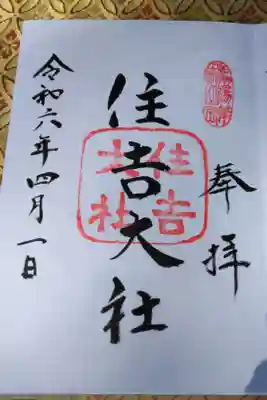 奉拝
住吉大社
住吉大社
令和六年四月一日